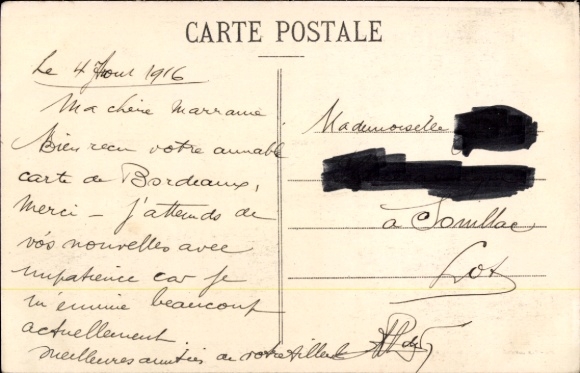 CARTE POSTALE
Le 4 Aout 1916
Ma chère Marraine
Bien reçu votre aimable
carte de Bordeaux,
Merci - j'attends de
vos nouvelles avec
impatience car je
m'ennuie beaucoup
actuellement.
Meilleures amitiés de votre filleul
Mademoiselle
à Souillac
Lot